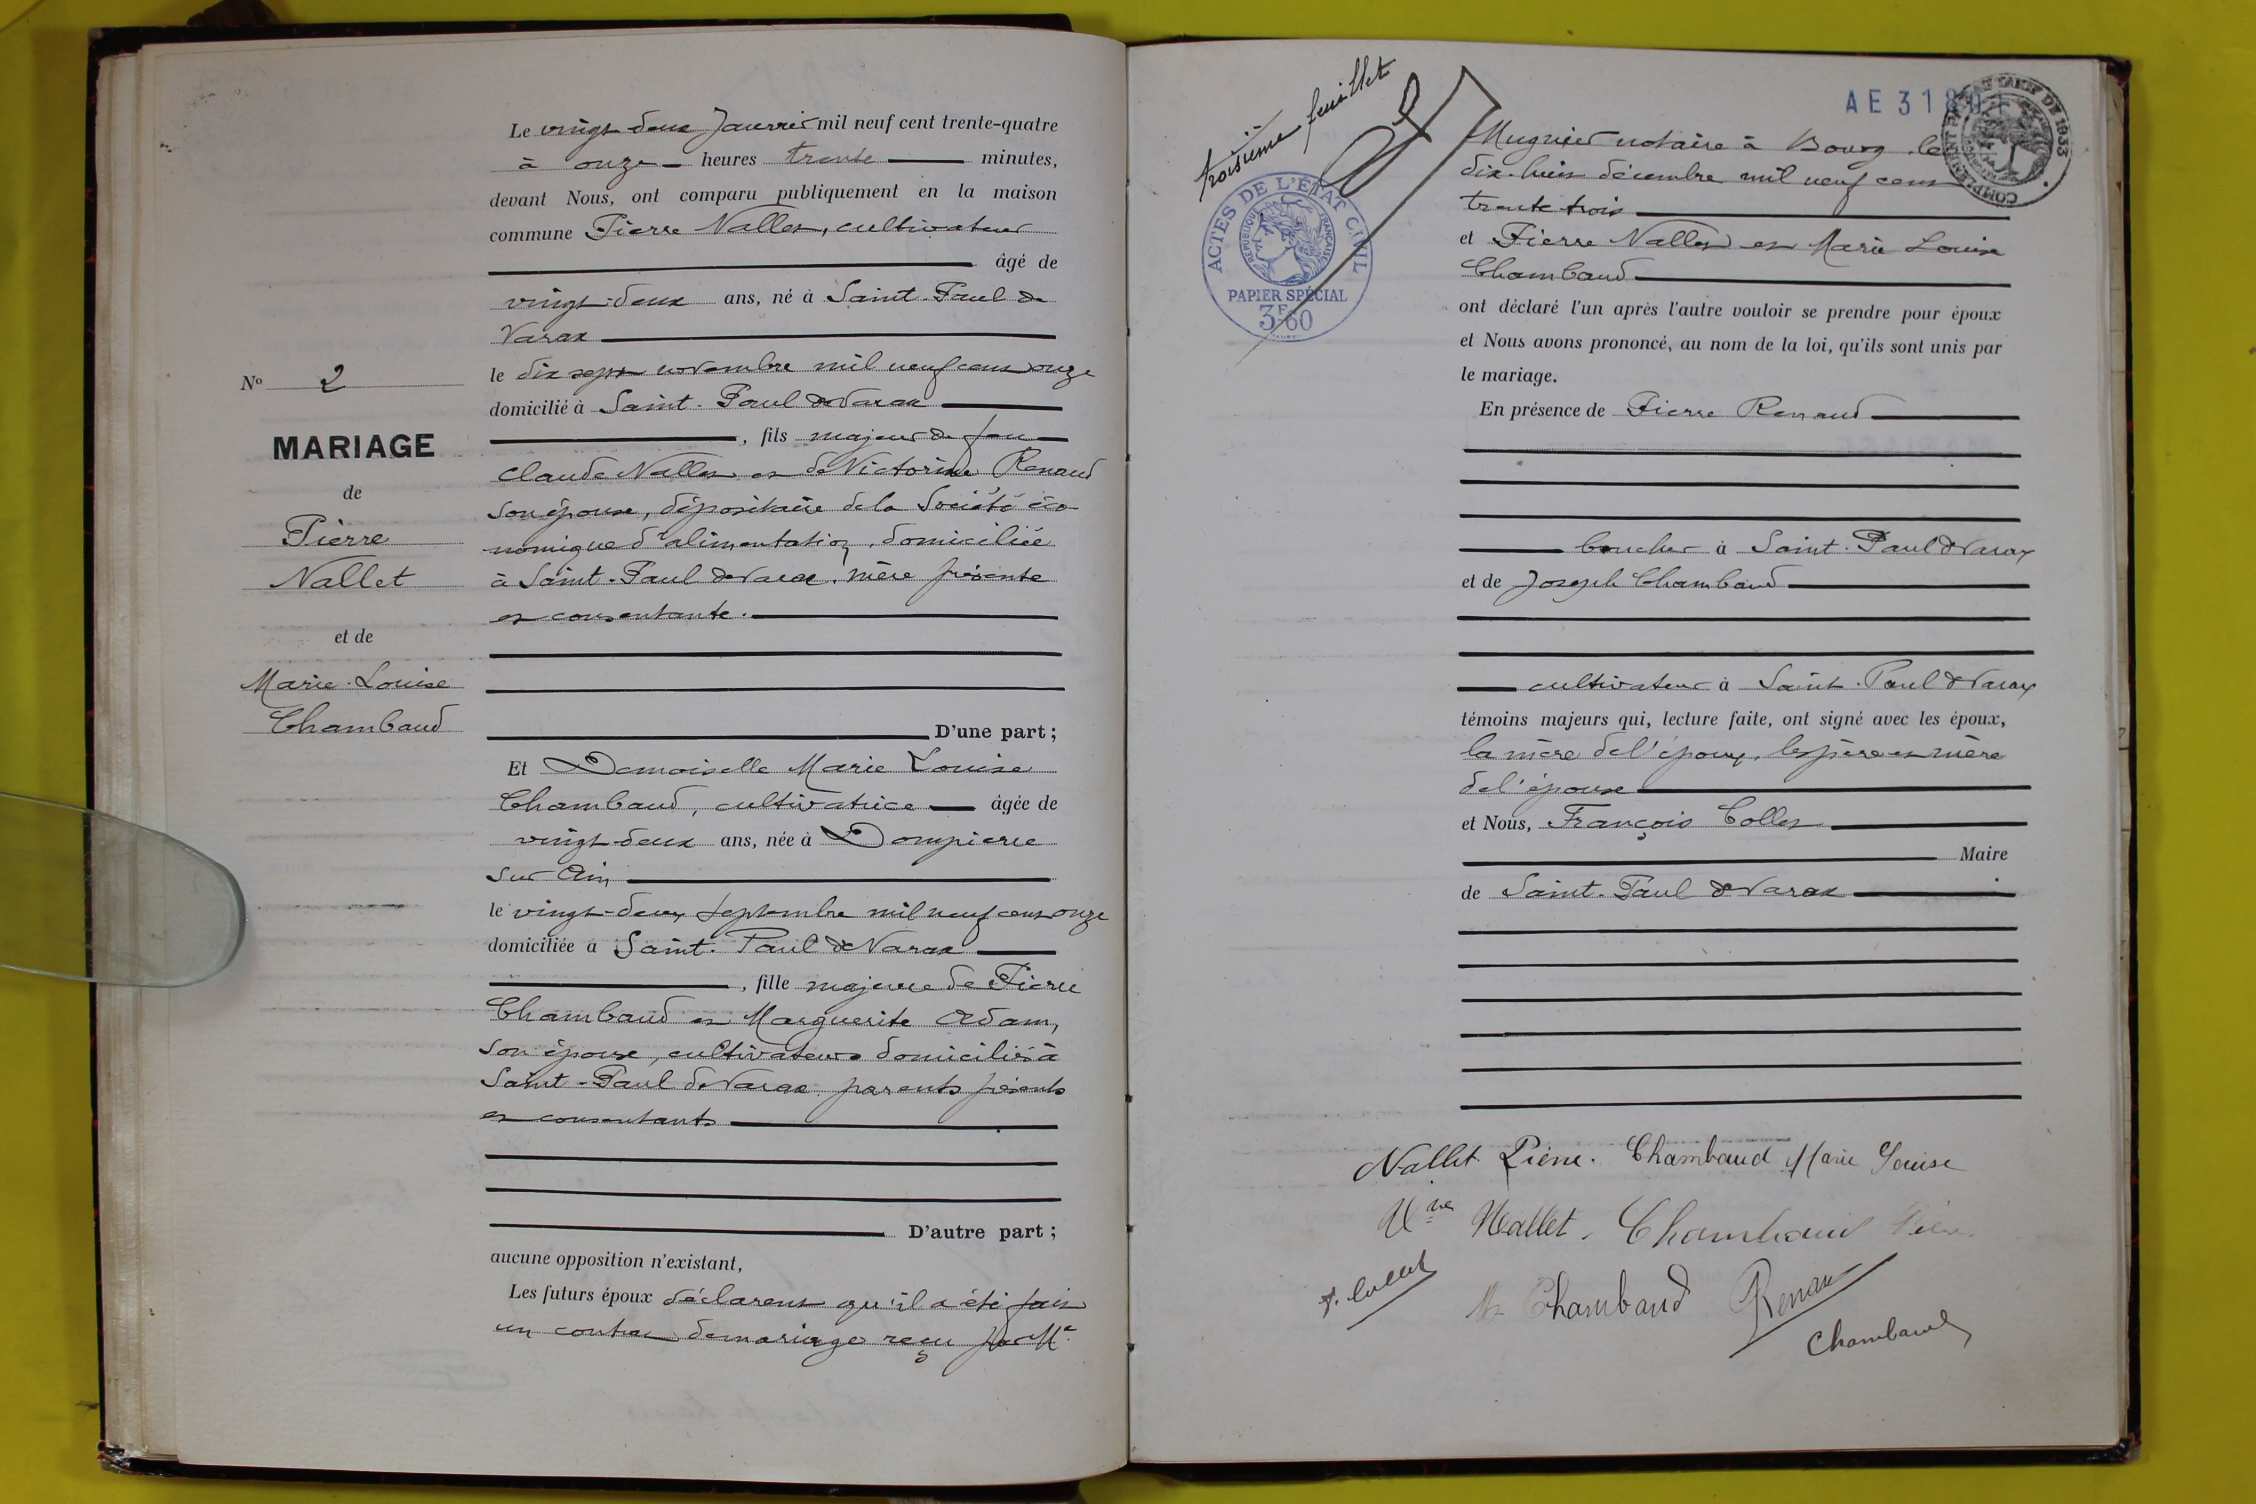 Le vingt deux Janvier mil neuf cent trente-quatre
à onze heures trente minutes,
devant Nous, ont comparu publiquement en la maison
commune Pierre Nallet, cultivateur
âgé de
vingt-deux ans, né à Saint-Paul de
Varax
le dix sept novembre mil neuf cent onze
domicilié à Saint-Paul de Varax
, fils majeur de feu
Claude Nallet et de Victorine Renaud
son épouse, dépositaire de la Société éco-
nomique d'alimentation, domiciliée
à Saint-Paul de Varax, mère présente
et consentante.
No 2
MARIAGE
de
Pierre
Nallet
et de
Marie-Louise
Chambaud
D'une part ;
Et Demoiselle Marie Louise
Chambaud, cultivatrice âgée de
vingt-deux ans, née à Dompierre
sur Ain
le vingt-deux septembre mil neuf cent onze
domiciliée à Saint-Paul de Varax
, fille majeure de Pierre
Chambaud et Marguerite Adam,
son épouse, cultivateurs domiciliés à
Saint-Paul de Varax parents présents
et consentants
D'autre part ;
aucune opposition n'existant,
Les futurs époux déclarent qu'il a été fait
un contrat de mariage reçu par Me
troisième feuillet
ACTES DE L'ÉTAT CIVIL
RÉPUBLIQUE FRANÇAISE
PAPIER SPÉCIAL
3F60
AE 318
TARIF DE 1933
Mugnier notaire à Bourg le
dix-huit décembre mil neuf cent
trente trois
et Pierre Nallet et Marie Louise
Chambaud
ont déclaré l'un après l'autre vouloir se prendre pour époux
et Nous avons prononcé, au nom de la loi, qu'ils sont unis par
le mariage.
En présence de Pierre Renaud
boucher à Saint-Paul de Varax
et de Joseph Chambaud
cultivateur à Saint-Paul de Varax
témoins majeurs qui, lecture faite, ont signé avec les époux,
la mère de l'époux, les père et mère
de l'épouse
et Nous, François Collet
Maire
de Saint-Paul de Varax
Nallet Pierre. Chambaud Marie Louise
Nallet. Chambaud
F. Collet
Chambaud Renaud
Chambaud